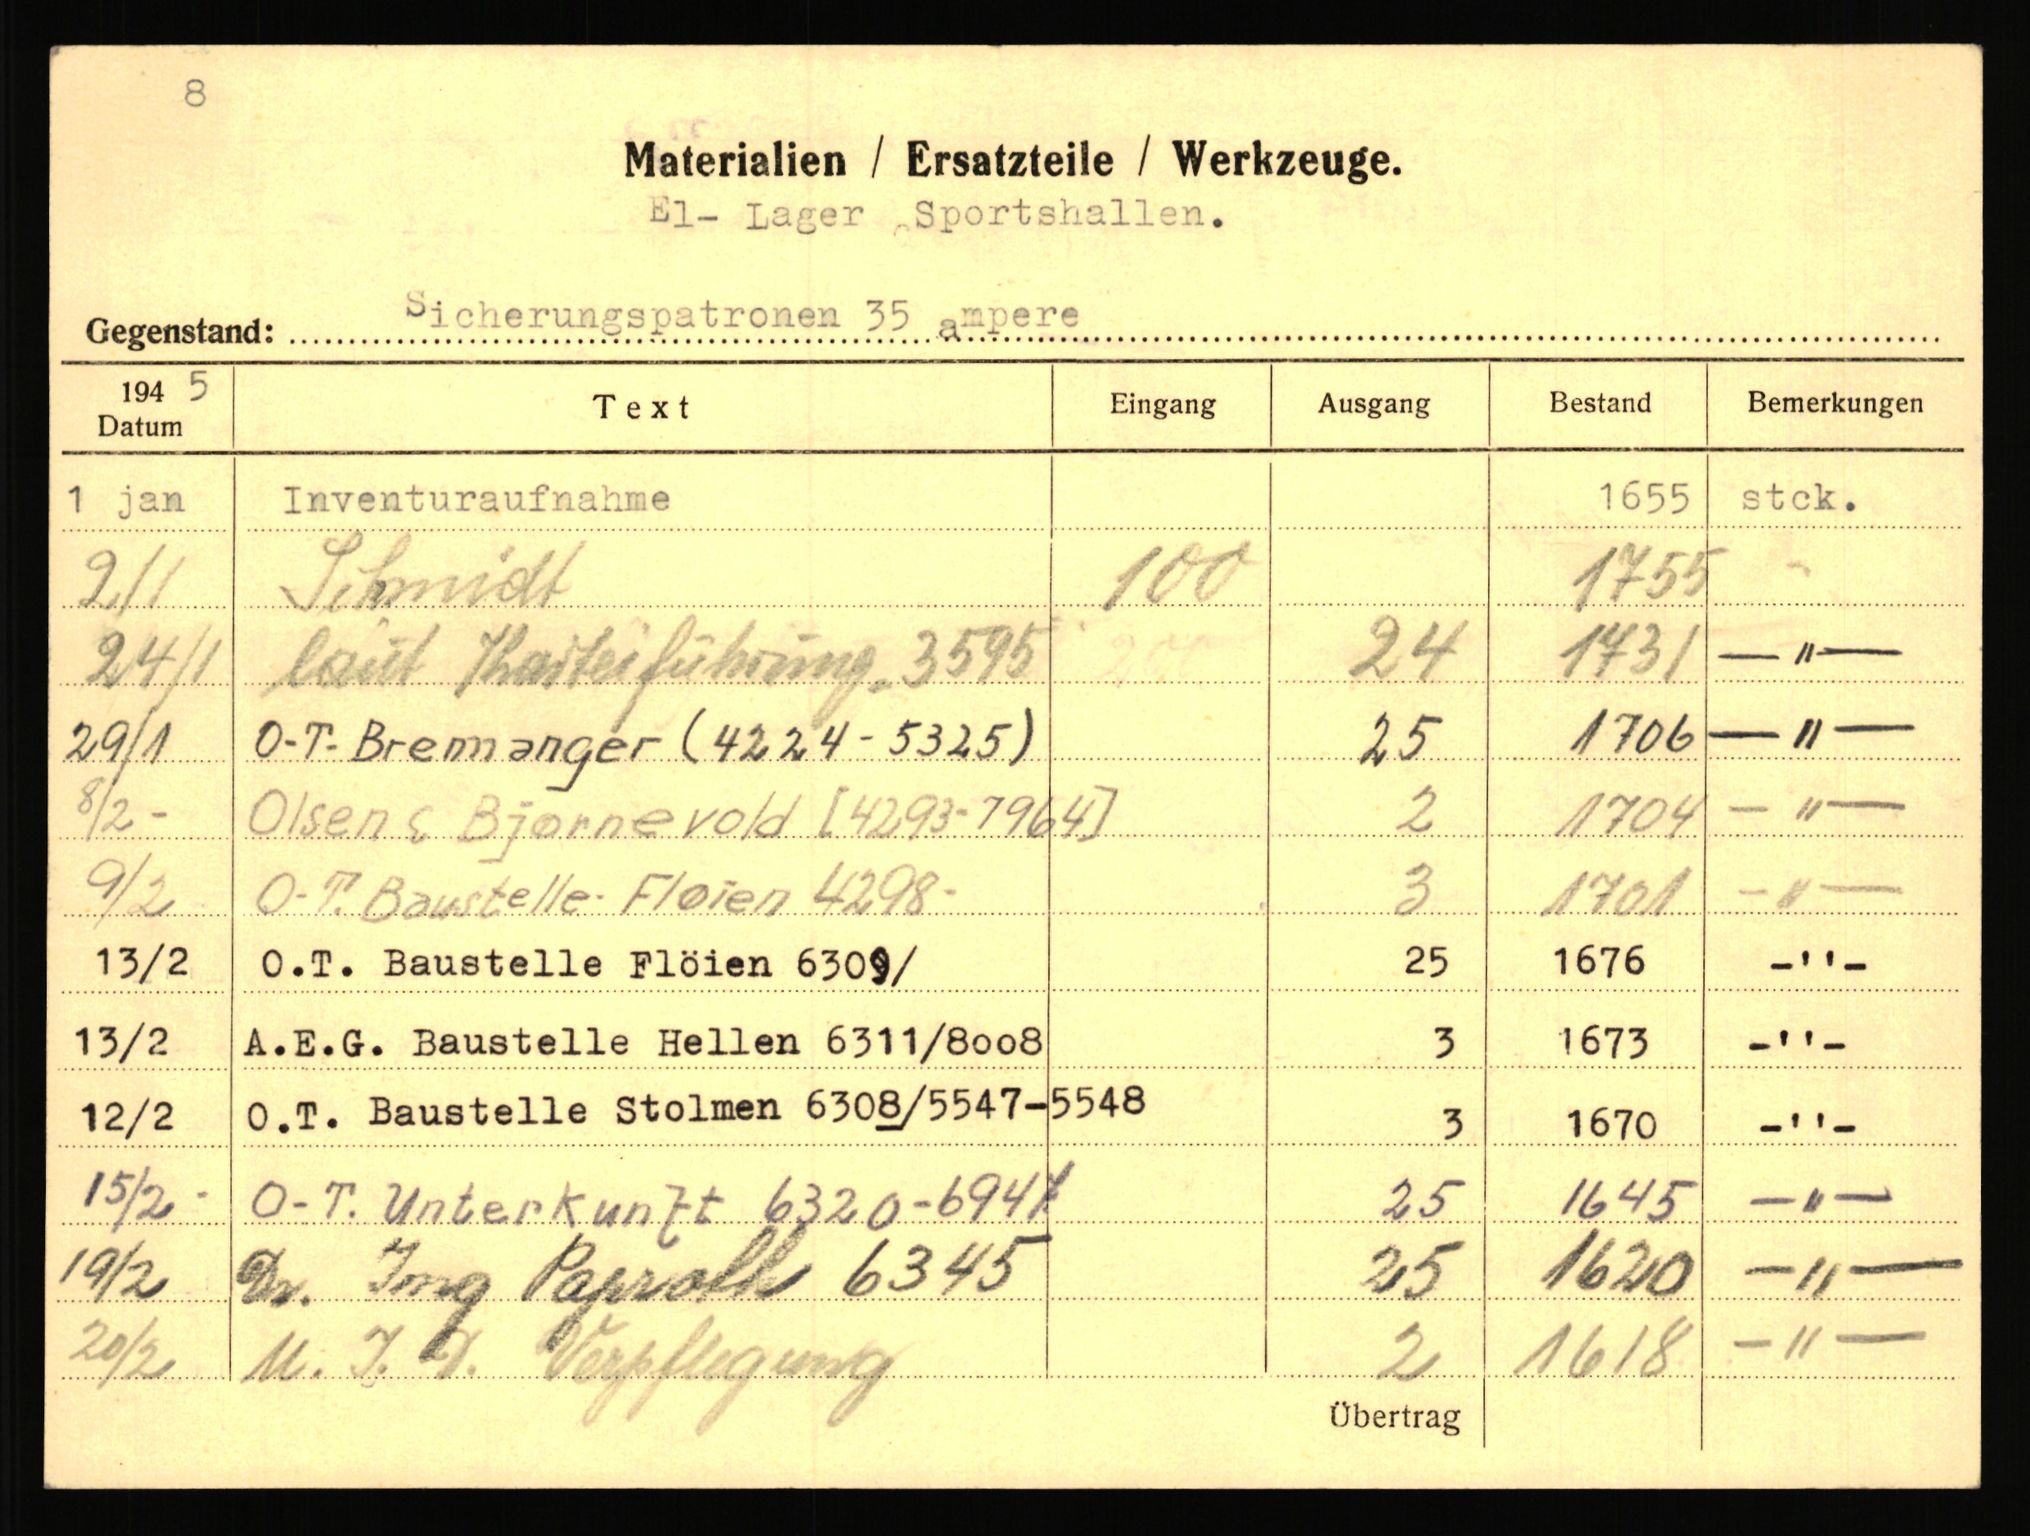 8
Materialien / Ersatzteile / Werkzeuge.
El- Lager Sportshallen.
Gegenstand: Sicherungspatronen 35 ampere
1945 Datum Text Eingang Ausgang Bestand Bemerkungen
1 jan Inventuraufnahme 1655 stck.
2/1 Schmidt 100 1755 "
24/1 laut Karteiführung 3595 24 1731 —"—
29/1 O-T- Bremanger (4224-5325) 25 1706 —"—
8/2- Olsen & Bjørnevold [4293-7964] 2 1704 —"—
9/2 O-T. Baustelle- Fløien 4298- 3 1701 —"—
13/2 O.T. Baustelle Flöien 6309/ 25 1676 -''-
13/2 A.E.G. Baustelle Hellen 6311/8oo8 3 1673 -''-
12/2 O.T. Baustelle Stolmen 6308/5547-5548 3 1670 -''-
15/2- O-T. Unterkunft 6320-694 25 1645 —"—
19/2 Dr. Ing 6345 25 1620 —"—
20/2 Verpflegung 2 1618 —"—
Übertrag